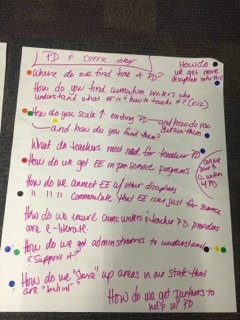 PD & curric integr
How do we get more disciplines into this?
Where do we find time 4 PD?
How do you find curriculum writers who
understand what EE is & how to teach it? (K12)
How do you scale ↑ existing PD — and how do you
and how do you find them?
What do teachers most need for teacher PD
How do we get EE in pre service programs
How do we connect EE w/ other disciplines
" " " " Communicate that EE isn't just for science
How do we ensure curric writers & teacher PD providers
are e-literate.
How do we get administrators to understand
& support it?
How do we "serve" up areas in our state that
are "behind"
How do we get partners to
help w/ PD